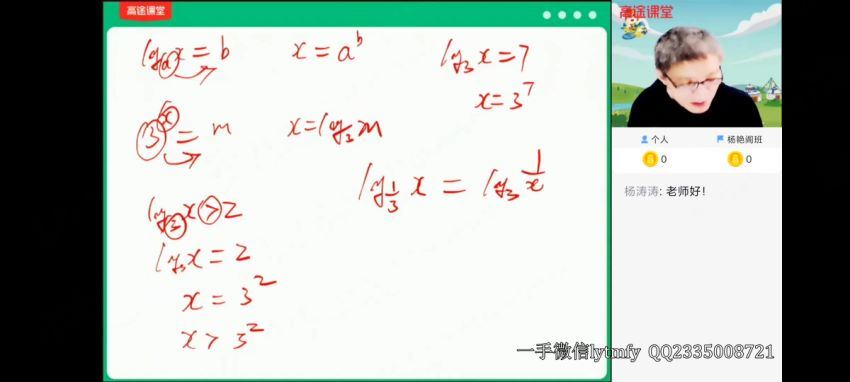 高途课堂
log_a x = b
x = a^b
log_3 x = 7
x = 3^7
3^x = m
x = log_3 m
log_{1/3} x = log_3 1/x
log_3 x > 2
log_3 x = 2
x = 3^2
x > 3^2
高途课堂
个人
杨艳阁班
0
0
杨涛涛: 老师好！
一手微信lytmfy QQ2335008721